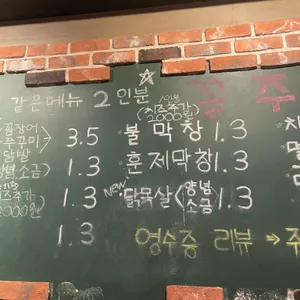 같은메뉴 2인분
1인분
(치즈추가
2000원)
꼼
주
꼼장어
쭈꾸미
3.5
불막창 1.3
닭발
소금)
1.3
훈제막창 1.3
추가
2000원)
1.3
New
닭목살 <양념
소금 1.3
1.3
영수증 리뷰 →